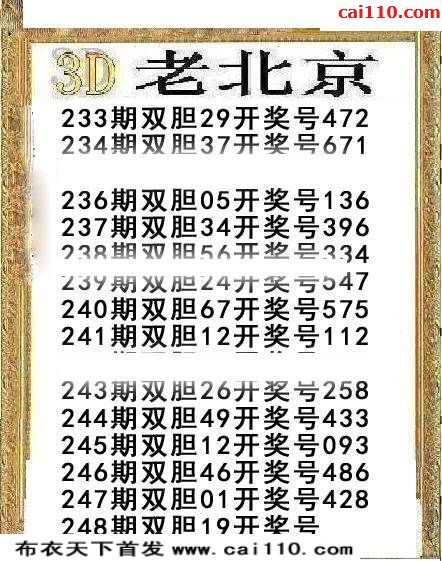 cai110.com
3D 老北京
233期双胆29开奖号472
234期双胆37开奖号671
236期双胆05开奖号136
237期双胆34开奖号396
238期双胆56开奖号334
239期双胆24开奖号547
240期双胆67开奖号575
241期双胆12开奖号112
243期双胆26开奖号258
244期双胆49开奖号433
245期双胆12开奖号093
246期双胆46开奖号486
247期双胆01开奖号428
248期双胆19开奖号
布衣天下首发 www.cai110.com